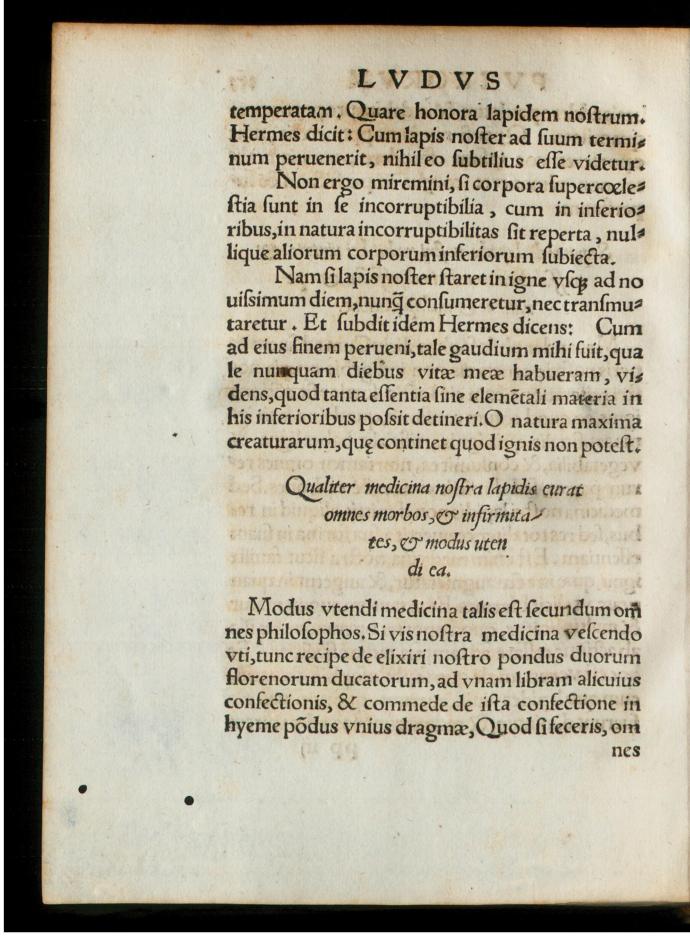 LVDVS
temperatam. Quare honora lapidem nostrum.
Hermes dicit: Cum lapis noster ad suum termi⸗
num peruenerit, nihil eo subtilius esse videtur.
Non ergo miremini, si corpora supercœle⸗
stia sunt in se incorruptibilia, cum in inferio⸗
ribus, in natura incorruptibilitas sit reperta, nul⸗
lique aliorum corporum inferiorum subiecta.
Nam si lapis noster staret in igne vsqꝫ ad no
uissimum diem, nunq̃ consumeretur, nec transmu⸗
taretur. Et subdit idem Hermes dicens: Cum
ad eius finem perueni, tale gaudium mihi fuit, qua
le nunquam diebus vitæ meæ habueram, vi⸗
dens, quod tanta essentia sine elemẽtali materia in
his inferioribus possit detineri. O natura maxima
creaturarum, quę continet quod ignis non potest.
Qualiter medicina nostra lapidis curat
omnes morbos, & infirmita⸗
tes, & modus uten
di ea.
Modus vtendi medicina talis est secundum om̃
nes philosophos. Si vis nostra medicina vescendo
vti, tunc recipe de elixiri nostro pondus duorum
florenorum ducatorum, ad vnam libram alicuius
confectionis, & commede de ista confectione in
hyeme põdus vnius dragmæ, Quod si feceris, om
nes